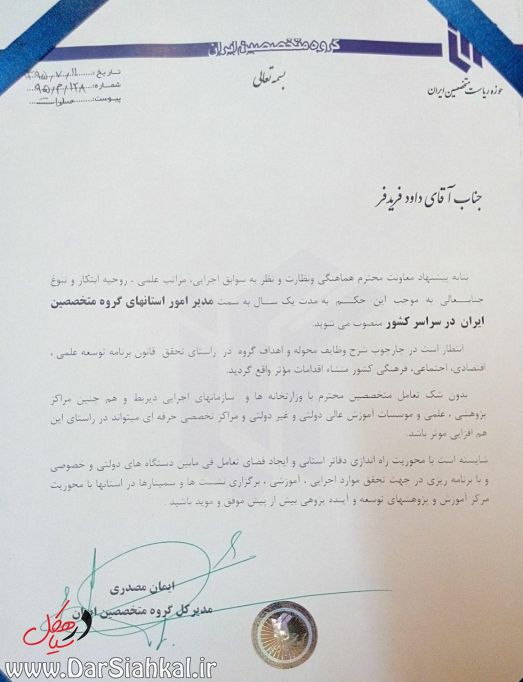 گروه متخصصین ایران
بسمه تعالی
حوزه ریاست متخصصین ایران
تاریخ: ۹۵/۷/۱۱
شماره: ۹۵/م/۱۲۸
پیوست:
جناب آقای داود فریدفر
بنابه پیشنهاد معاونت محترم هماهنگی ونظارت و نظر به سوابق اجرایی، مراتب علمی ، روحیه ابتکار و نبوغ
جنابعالی به موجب این حکم به مدت یک سال به سمت مدیر امور استانهای گروه متخصصین
ایران در سراسر کشور منصوب می شوید.
انتظار است در چارچوب شرح وظایف محوله و اهداف گروه در راستای تحقق قانون برنامه توسعه علمی ،
اقتصادی، اجتماعی، فرهنگی کشور منشاء اقدامات مؤثر واقع گردید.
بدون شک تعامل متخصصین محترم با وزارتخانه ها و سازمانهای اجرایی ذیربط و هم چنین مراکز
پژوهشی ، علمی و موسسات آموزش عالی دولتی و غیر دولتی و مراکز تخصصی حرفه ای میتواند در راستای این
هم افزایی موثر باشد.
شایسته است با محوریت راه اندازی دفاتر استانی و ایجاد فضای تعامل فی مابین دستگاه های دولتی و خصوصی
و با برنامه ریزی در جهت تحقق موارد اجرایی ، آموزشی ، برگزاری نشست ها و سمینارها در استانها با محوریت
مرکز آموزش و پژوهشهای توسعه و آینده پژوهی بیش از پیش موفق و موید باشید .
ایمان مصدری
مدیرکل گروه متخصصین ایران
در سیاهکل
www.DarSiahkal.ir